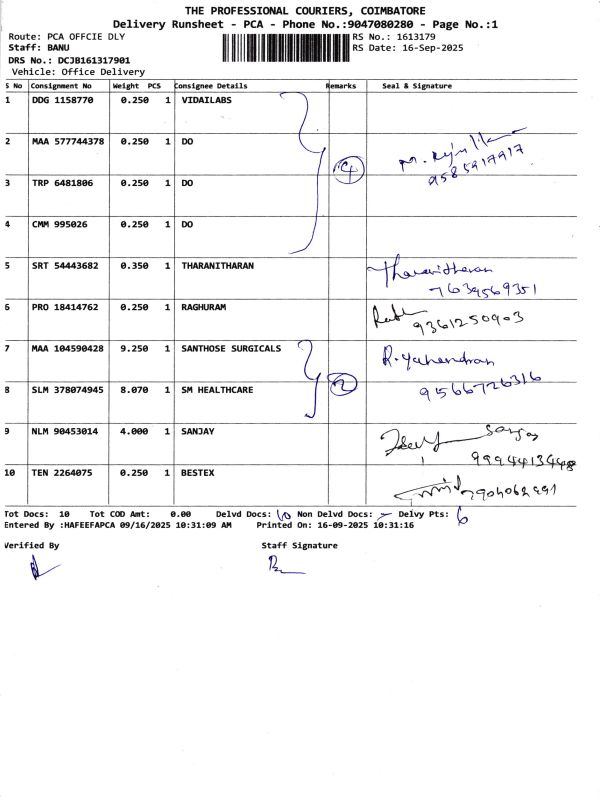 THE PROFESSIONAL COURIERS, COIMBATORE
Delivery Runsheet - PCA - Phone No.:9047080280 - Page No.:1
Route: PCA OFFCIE DLY RS No.: 1613179
Staff: BANU RS Date: 16-Sep-2025
DRS No.: DCJB161317901
Vehicle: Office Delivery
S No Consignment No Weight PCS Consignee Details Remarks Seal & Signature
1 DDG 1158770 0.250 1 VIDAILABS
2 MAA 577744378 0.250 1 DO 4
9585917917
3 TRP 6481806 0.250 1 DO
4 CMM 995026 0.250 1 DO
5 SRT 54443682 0.350 1 THARANITHARAN Tharanitharan
7639569351
6 PRO 18414762 0.250 1 RAGHURAM
9361250903
7 MAA 104590428 9.250 1 SANTHOSE SURGICALS
8 SLM 378074945 8.070 1 SM HEALTHCARE 2 9566726316
9 NLM 90453014 4.000 1 SANJAY Sanjay
9994413448
10 TEN 2264075 0.250 1 BESTEX 7904062991
Tot Docs: 10 Tot COD Amt: 0.00 Delvd Docs: 10 Non Delvd Docs: - Delvy Pts: 6
Entered By :HAFEEFAPCA 09/16/2025 10:31:09 AM Printed On: 16-09-2025 10:31:16
Verified By Staff Signature